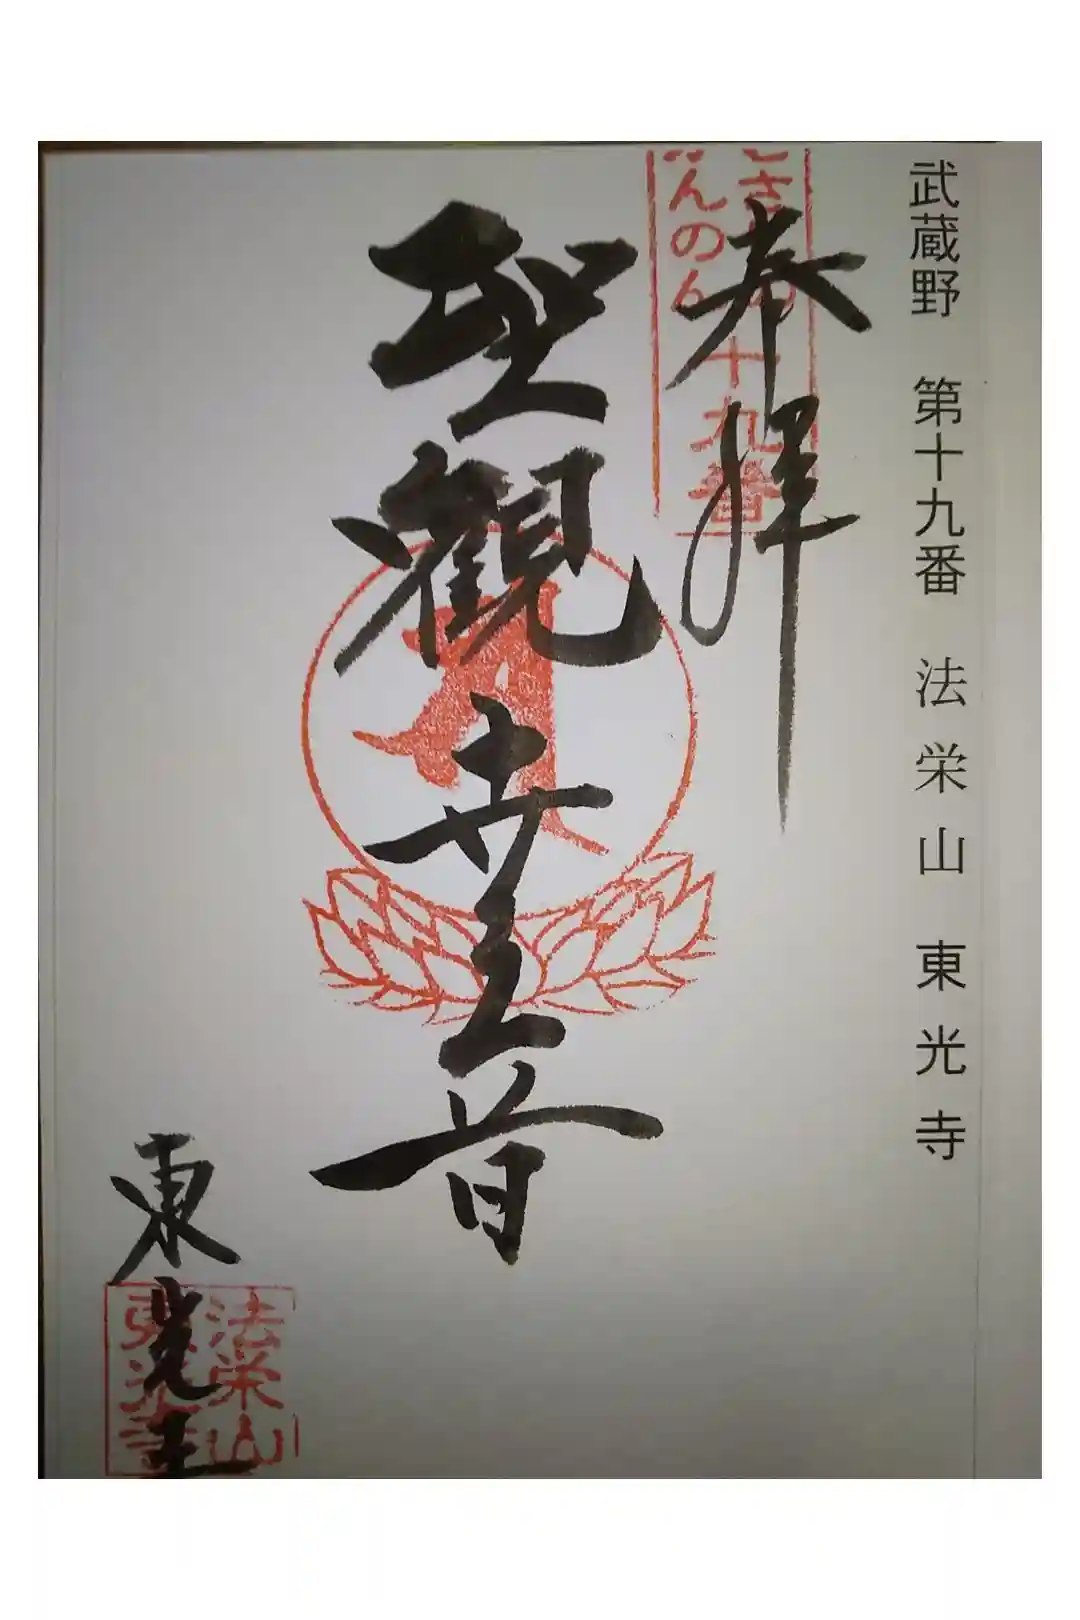 武蔵野 第十九番 法栄山 東光寺
奉拝
んのん
十九番
聖観世音
東光寺
法栄山
東光寺